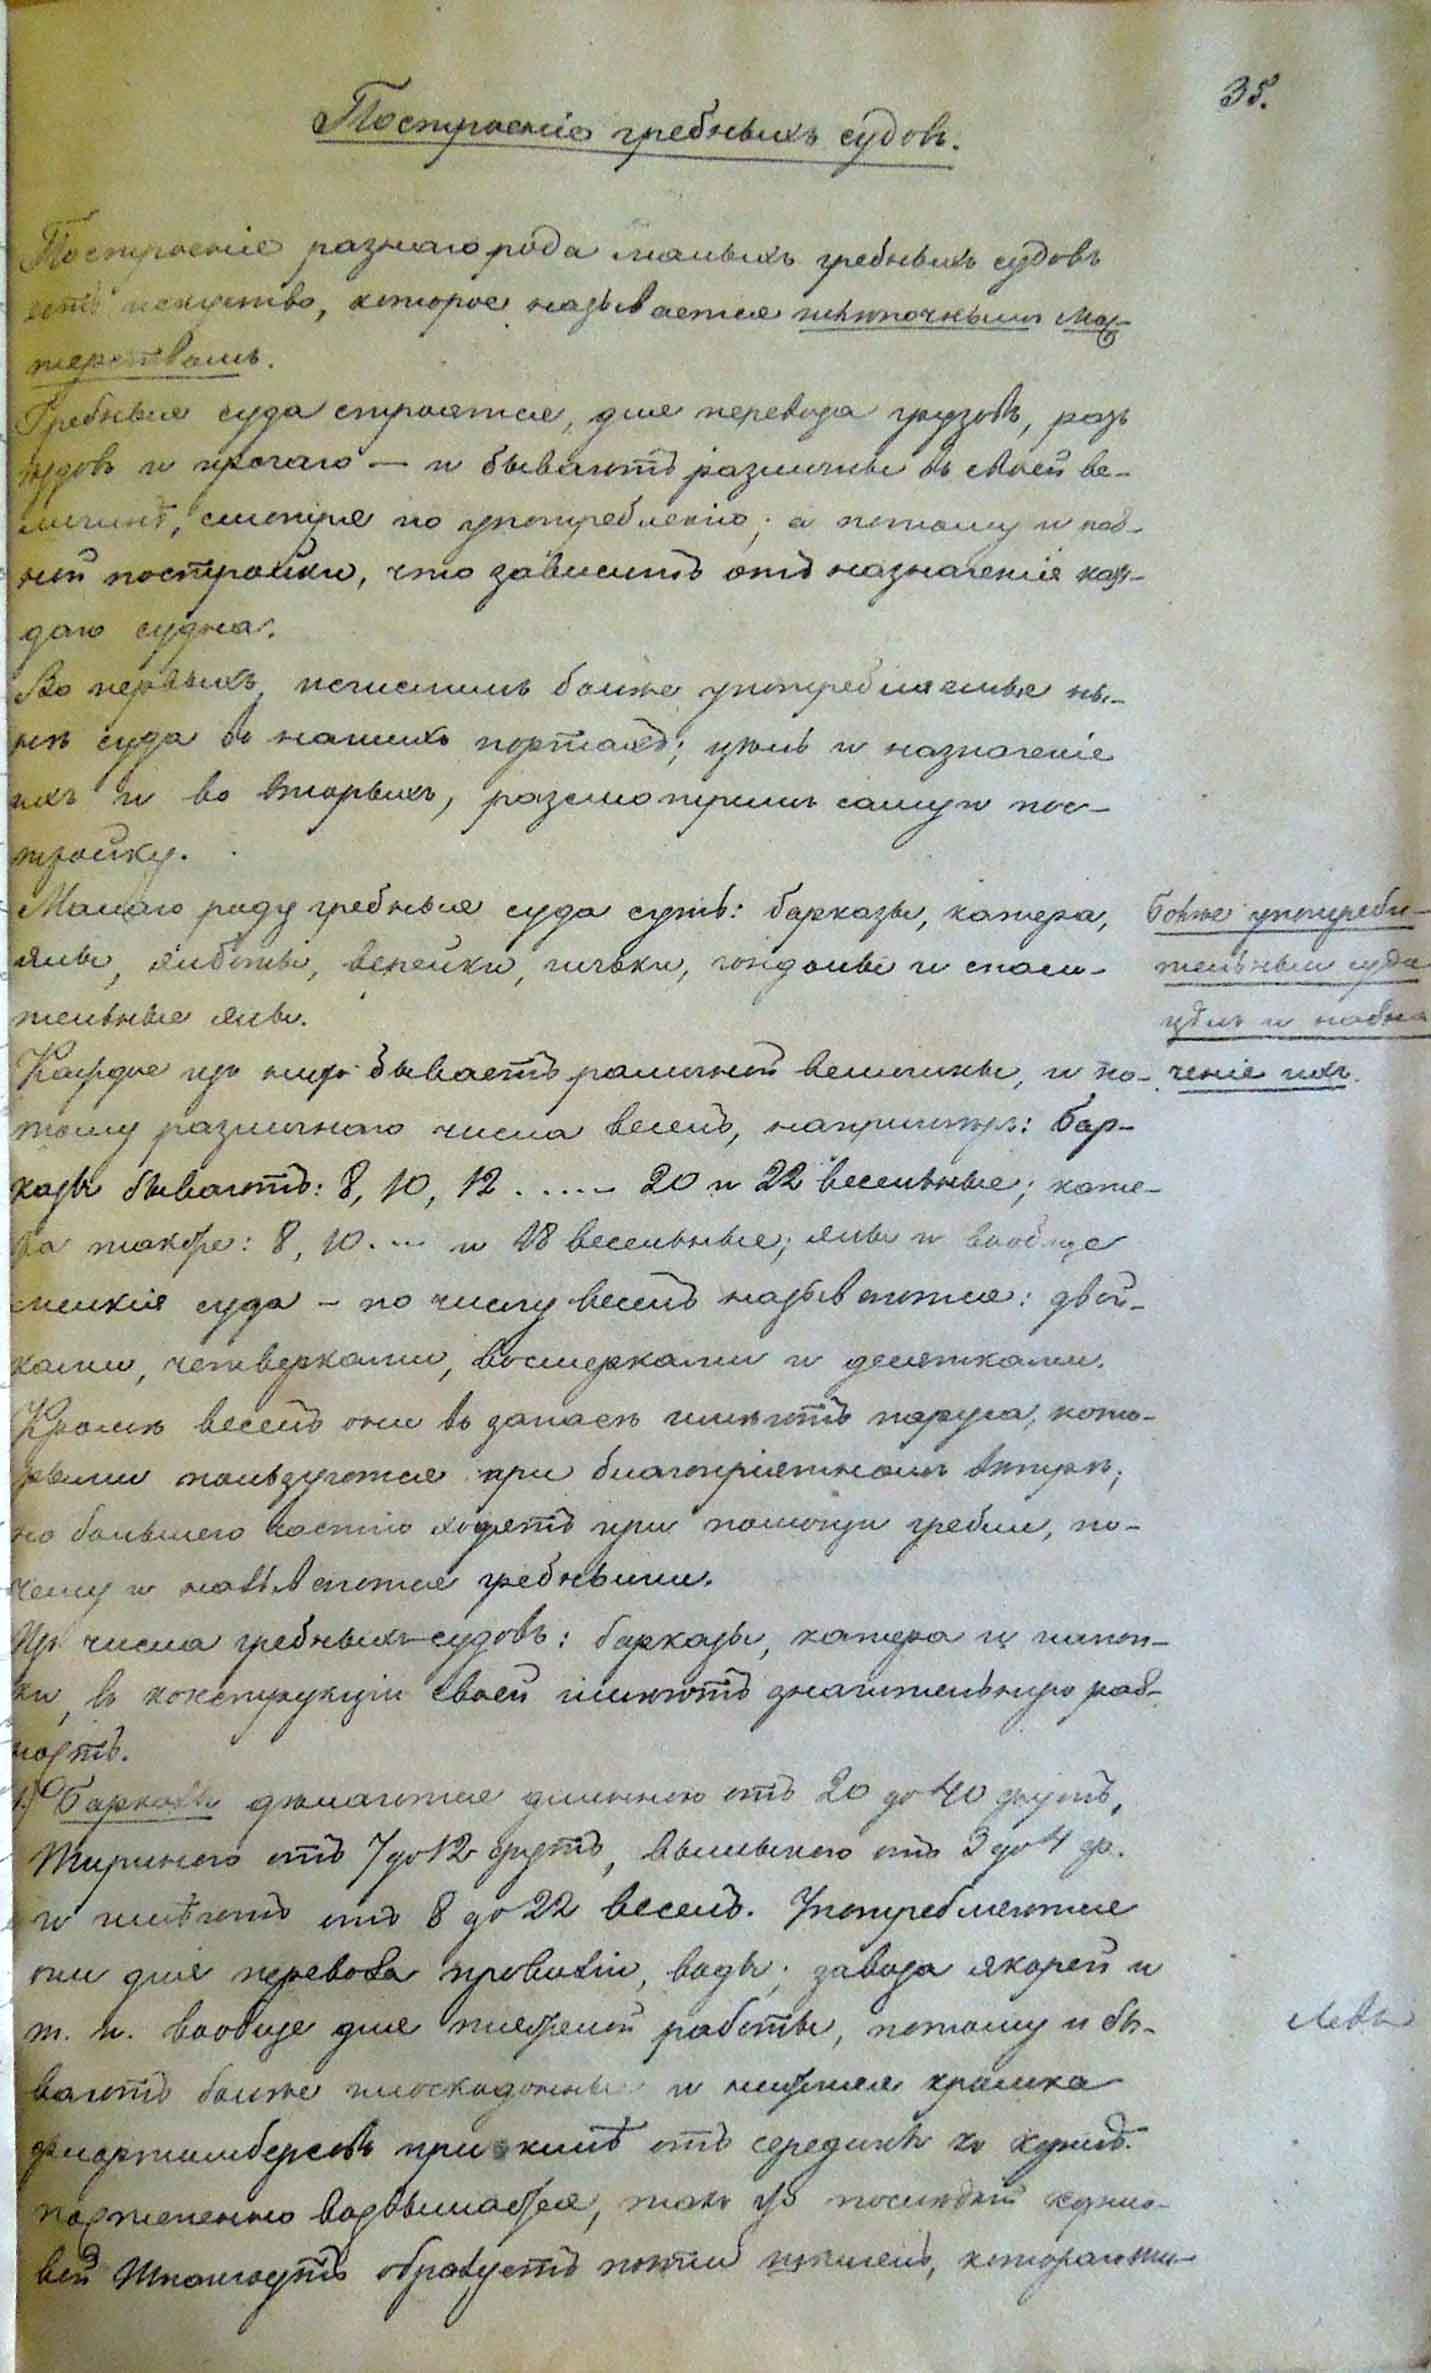 35.
Построеніе гребныхъ судовъ.
Построеніе разнаго рода малыхъ гребныхъ судовъ
есть искуство, которое называется шлюпочнымъ мас-
терствомъ.
Гребныя суда строятся, для перевоза грузовъ, разъ
ѣздовъ и прочаго — и бываютъ различны въ своей ве-
личинѣ, смотря по употребленію; а потому и
ной постройки, что зависитъ отъ назначенія каж-
даго судна.
Во первыхъ, исчислимъ болѣе употребляемые ны-
нѣ суда въ нашихъ портахъ; цѣль и назначеніе
ихъ и во вторыхъ, разсмотримъ самую пос-
тройку.
Малаго роду гребныя суда суть: барказы, катера,
ялы, ялботы, вельботы, гички, гондолы и спаси-
тельные ялы.
Каждое изъ нихъ бываетъ различной величины, и по-
тому различнаго числа веселъ, напримѣръ: бар-
казы бываютъ: 8, 10, 12 ..... 20 и 22 весельные; кате-
ра также: 8, 10 .... и 18 весельные; ялы и вообще
мелкія суда – по числу веселъ называются: двой-
ками, четверками, восмерками и десятками.
Кромѣ веселъ они въ запасѣ имѣютъ паруса, кото-
рыми пользуются при благопріятномъ вѣтрѣ;
но большею частію ходятъ при помощи гребли, по-
чему и называются гребными.
Изъ числа гребныхъ судовъ: барказы, катера и шлюп-
ки, въ конструкціи своей имѣютъ значительную раз-
ность.
1.) Барказы дѣлаются длинною отъ 20 до 40 футъ,
шириною отъ 7 до 12 футъ, вышыною отъ 3 до 4 ф.
и имѣютъ отъ 8 до 22 веселъ. Употребляются
они для перевоза провизіи, воды; завоза якорей и
т. п. вообще для тяжелой работы, потому и бы-
ваютъ болѣе плоскодонны и нижняя кромка
флортимберсовъ при килѣ отъ середины къ кормѣ
постепенно возвышается, такъ что послѣдній кормо-
вой шпангоутъ образуетъ почти, котораго
Болѣе употреби-
тельныя суда
цѣль и назна
ченіе ихъ.